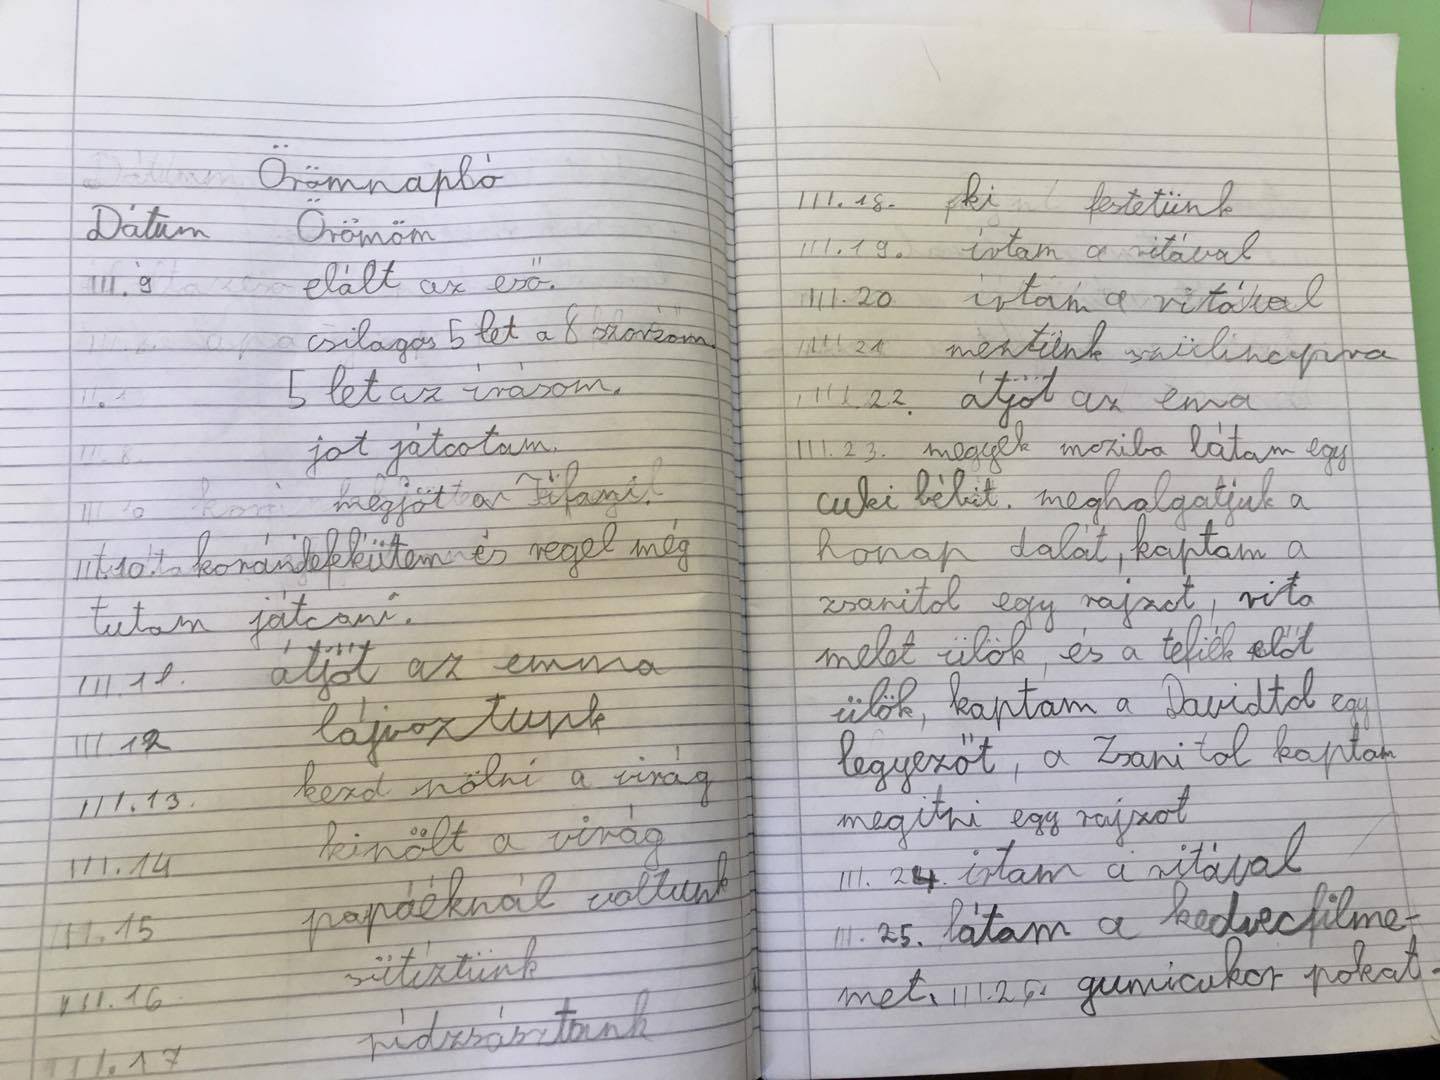 Örömnapló
Dátum Örömöm
III. 9 elált az eső.
csilagos 5 let a 8 szorzóm.
5 let az írásom.
jot játcotam.
megjöt a Tifani.
III.10. korán lefekűtem és regel még
tutam játcani.
III.11. átjöt az emma
III 12 lájvoztunk
III.13. kezd nőlni a virág
III.14 kinőlt a virág
III.15 papáéknál voltunk
III.16 sütiztünk
III.17 pidzsásztunk
III.18. ki festetünk
III.19. írtam a ritával
III.20 írtam a ritával
III 21 mentünk szülincapra
III.22. átjöt az ema
III.23. megyek moziba látam egy
cuki bébit. meghalgatjuk a
honap dalát, kaptam a
zsanitol egy rajzot, rita
melet ülök, és a tefiék előt
ülök, kaptam a Davidtol egy
legyezőt, a Zsanitol kaptam
megitni egy rajzot
III. 24. írtam a ritával
III. 25. látam a kedvecfilme-
met. III.26. gumicukor pokat-